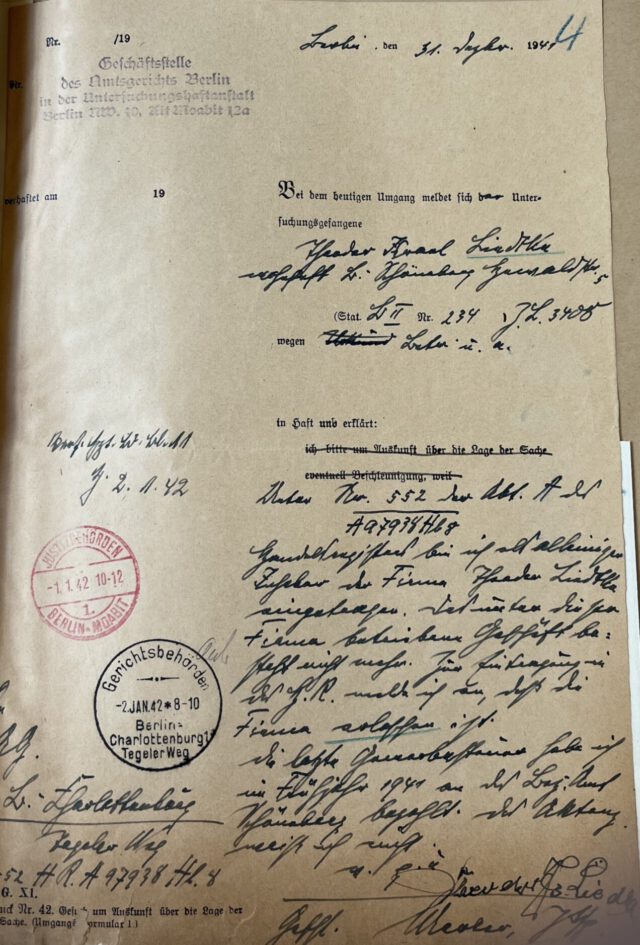 Nr. /19
Berlin, den 31. Dezbr. 1941
4
Geschäftsstelle
des Amtsgerichts Berlin
in der Untersuchungshaftanstalt
Berlin NW. 40, Alt Moabit 12a
verhaftet am 19
Bei dem heutigen Umgang meldet sich der Unter-
suchungsgefangene
Theodor Israel Liedtke
wohnhaft B.-Schöneberg
5
(Stat. B II Nr. 234
wegen Betr. u. a.
in Haft und erklärt:
ich bitte um Auskunft über die Lage der Sache
eventuell Beschleunigung, weil
Unter Nr. 552 der Abt. A des
A 97938 Hl 8
Handelsregisters bin ich als alleiniger
Inhaber der Firma Theodor Liedtke
eingetragen. Das unter dieser
Firma betriebene Geschäft be-
steht nicht mehr. Zur Eintragung in
das H. R. melde ich an, daß die
Firma erloschen ist.
Die letzte Gewerbesteuer habe ich
im Frühjahr 1941 an das Bez. Amt
Schöneberg bezahlt. Das Aktenz.
weiß ich nicht.
Theodor Is. Liedtke
2. 1. 42
JUSTIZBEHÖRDEN
-1.1.42 10-12
1.
BERLIN-MOABIT
Gerichtsbehörden
-2.JAN.42*8-10
Berlin-
Charlottenburg 1
Tegeler Weg
AG.
B.-Charlottenburg
Tegeler Weg
552 H R. A 97938 Hl. 8
G. XI.
Nr. 42. Gesuch um Auskunft über die Lage der
Sache. (Umgangsformular 1.)